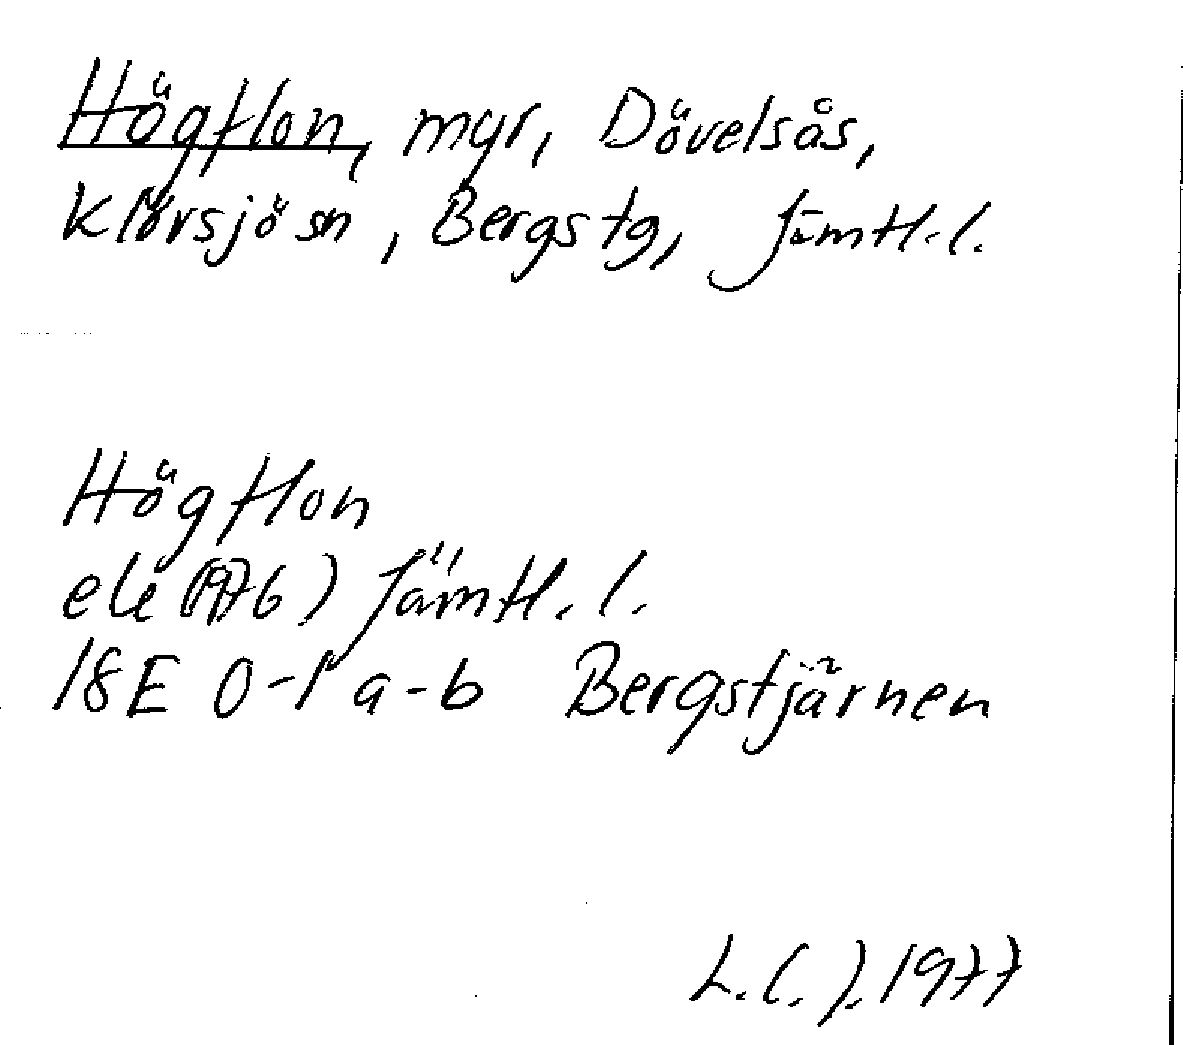 Högflon, myr, Dövelsås,
Klövsjösn, Bergstg, Jämtl. l.
Högflon
ek (1976) Jämtl. l.
18E 0-1 a-b Bergstjärnen
L. C. J. 1977